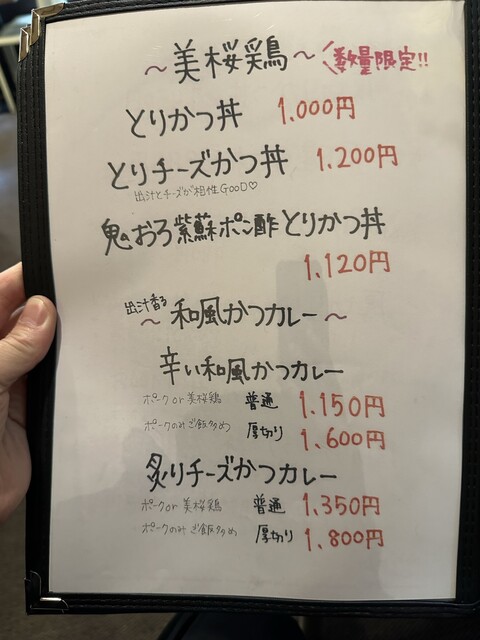 ～美桜鶏～ 数量限定!!
とりかつ丼 1.000円
とりチーズかつ丼 1.200円
出汁とチーズが相性GOOD♡
鬼おろ紫蘇ポン酢とりかつ丼
1.120円
出汁香る
～和風かつカレー～
辛い和風かつカレー
ポークor美桜鶏 普通 1.150円
ポークのみ ご飯多め 厚切り 1.600円
炙りチーズかつカレー
ポークor美桜鶏 普通 1.350円
ポークのみ ご飯多め 厚切り 1.800円